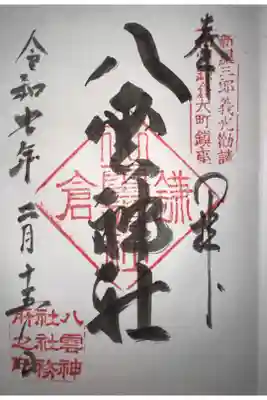 新羅三郎義光勧請
鎌倉大町鎮座
奉拝
八雲神社
鎌倉
令和 年 二月十五日
八雲神
社社務
所之印